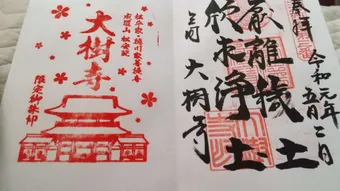 奉拝
令和元年五月二日
厭離穢土
欣求浄土
三河 大樹寺
松平家・徳川家菩提寺
成道山 松安院
大樹寺
限定御朱印